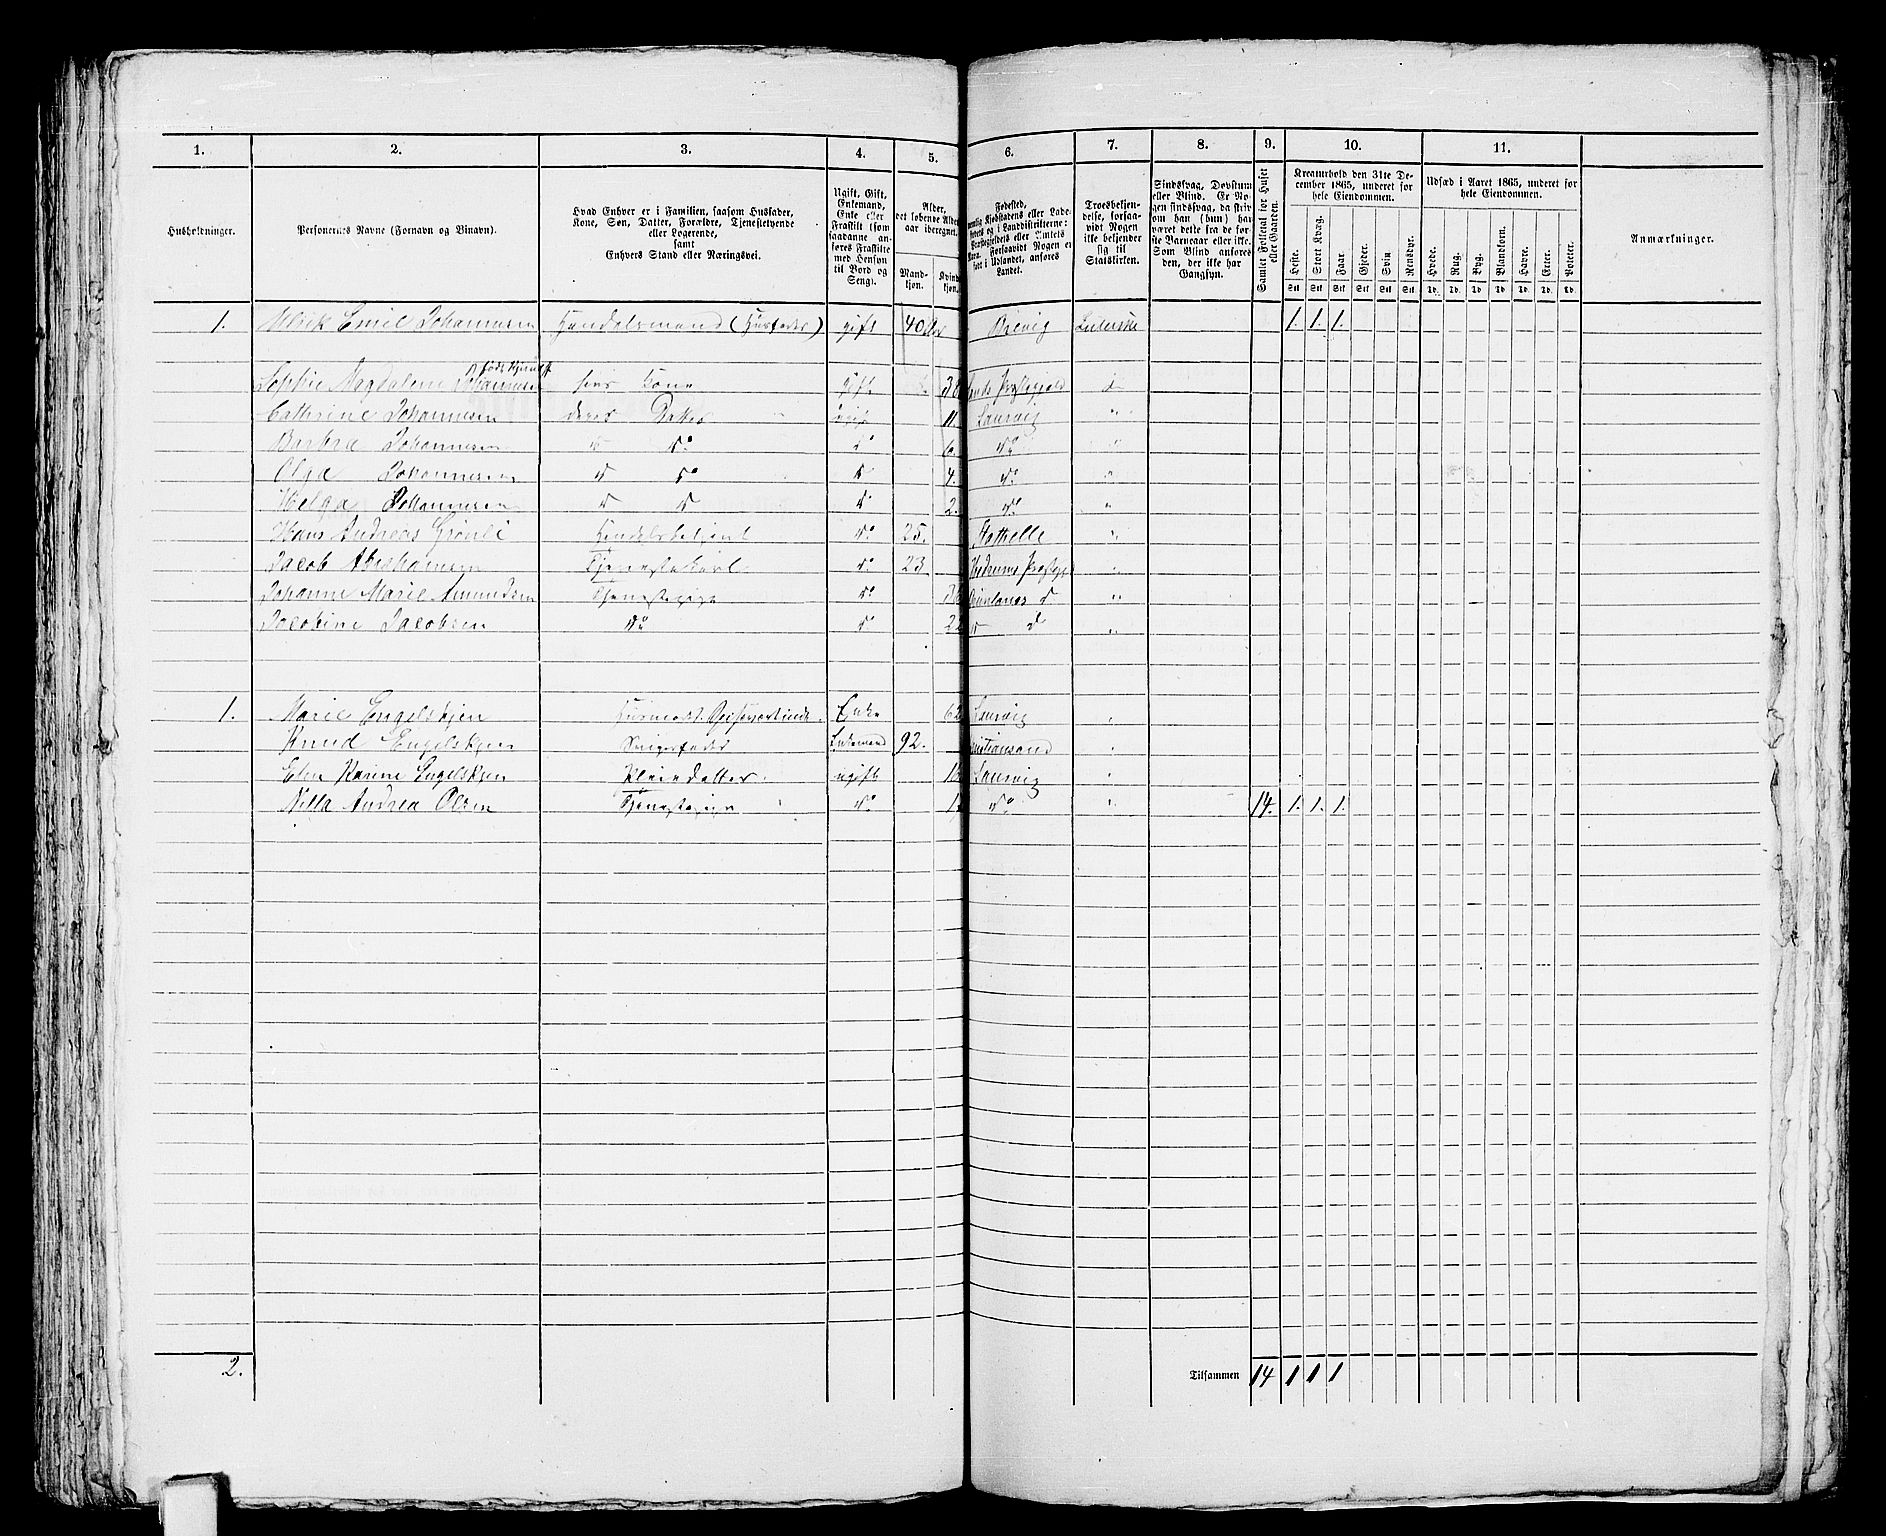 1. 2. 3. 4. 5. 6. 7. 8. 9. 10. 11.
Husholdninger.
Personernes Navne (Fornavn og Vinavn).
Hvad Enhver er i Familien, saasom Husfader,
Kone, Søn, Datter, Forældre, Tjenestetyende
eller Logerende,
samt
Enhvers Stand eller Næringsvei.
Ugift, Gift,
Enkemand,
Enke eller
Fraskilt (som
saadanne an-
føres Fraskilte
med Hensyn
til Bord og
Seng).
Alder,
det løbende Alders-
aar iberegnet.
Mand-
kjøn.
Kvinde-
kjøn.
Fødested,
nemlig Kjøbstadens eller Lade-
stedets og i Landdistrikterne:
Præstegjeldets eller Amtets
Navn. Forsaavidt Nogen er
født i Udlandet, anføres
Landet.
Troesbekjen-
delse, forsaa-
vidt Nogen
ikke bekjender
sig til
Statskirken.
Sindssvag, Døvstum
eller Blind. Er No-
gen sindssvag, da skri-
ves om han (hun) har
været dette fra de før-
ste Barneaar eller ikke.
Som Blind anføres
den, der ikke har
Gangsyn.
Samlet Folketal for Huset
eller Gaarden.
Kreaturhold den 31te De-
cember 1865, underet for
hele Eiendommen.
Heste. Stort Kvæg. Faar. Gjeder. Svin. Rensdyr.
Stk Stk Stk Stk Stk Stk
Udsæd i Aaret 1865, underet for
hele Eiendommen.
Hvede. Rug. Byg. Blandkorn. Havre. Erter. Poteter.
Td. Td. Td. Td. Td. Td. Td.
Anmærkninger.
1. Ulrik Emil Johannesen Handelsmand (Husfader) gift 40 Brevig Lutherske 1. 1. 1.
født
Sophie Magdalene Johannesen hans Kone gift
Cathrine Johannesen deres Datter ugift 11. Laurvig "
Barbra Johannesen do 6. do "
Olga Johannesen do 4. do "
Helga Johannesen 2. do "
Hans Andreas Grønli Handelsbetjent do 25. Stathelle "
Jacob Abrahamsen Tjenestekarl do 23 Hedrums Præstegj "
Johanne Marie Amundsen Tjenestepige do "
Jacobine Jacobsen do "
1. Marie Engelskjøn Husmoder Enke 62 Laurvig
Knud Engelskjøn Svigerfader Enkemand 92. Kristiansand
Elen Karine Engelskjøn Pleiedatter ugift Laurvig
Nilla Andrea Olsen Tjenestepige do do 14. 1. 1. 1.
2. Tilsammen 14 1 1 1